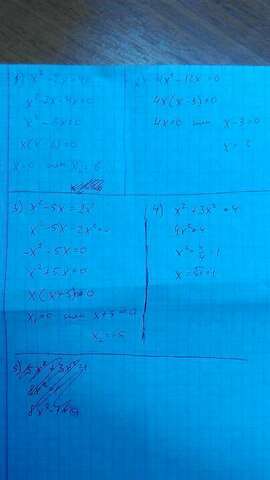 1) x² - 2x = 4x
x² - 2x - 4x = 0
x² - 6x = 0
x(x - 6) = 0
x = 0 или x₂ = 6
4x² - 12x = 0
4x(x - 3) = 0
4x = 0 или x - 3 = 0
x = 3
3) x² - 5x = 2x²
x² - 5x - 2x² = 0
-x² - 5x = 0
x² + 5x = 0
x(x + 5) = 0
x₁ = 0 или x + 5 = 0
x₂ = -5
4) x² + 3x² = 4
4x² = 4
x² = 4/4 = 1
x = √1 = 1
5) 5x² + 3x² =
8x²